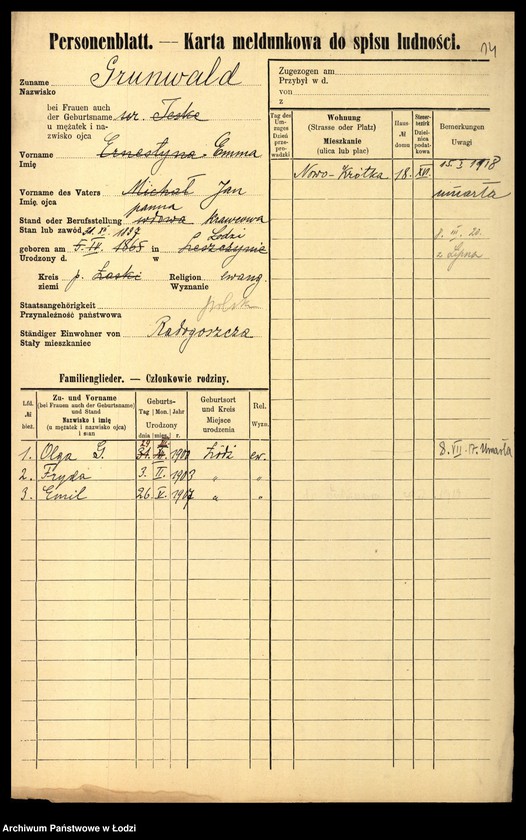 Personenblatt. — Karta meldunkowa do spisu ludności.
14
Zuname Grunwald
Nazwisko
bei Frauen auch
der Geburtsname ur. Teske
u mężatek i na-
zwisko ojca
Vorname Ernestyna - Emma
Imię
Vorname des Vaters Michał Jan
Imię ojca
panna
Stand oder Berufsstellung wdowa krawcowa
Stan lub zawód
1887 Łodzi
geboren am 5. IV. 1865 in Leszczynie
Urodzony d. w
Kreis p. Łaski Religion ewang.
ziemi Wyznanie
Staatsangehörigkeit polsk
Przynależność państwowa
Ständiger Einwohner von Radogoszcza
Stały mieszkaniec
Zugezogen am
Przybył w d.
von
z
Tag des Um-zuges Dzień prze-pro-wadzki
Wohnung
(Strasse oder Platz)
Mieszkanie
(ulica lub plac)
Haus-
№
domu
Steuer-bezirk Dziel-nica podat-kowa
Bemerkungen
Uwagi
Nowo-Krótka 18. XVI.
15. 3 1918
umarła
8. III. 20.
z
Familienglieder. — Członkowie rodziny.
Lfd.
№
bież.
Zu- und Vorname
(bei Frauen auch der Geburtsname)
und Stand
Nazwisko i imię
(u mężatek i nazwisko ojca)
i stan
Geburts-
Tag Mon. Jahr
Urodzony
dnia mies. r.
Geburtsort
und Kreis
Miejsce
urodzenia
Rel.
Wyzn.
1. Olga G. 1900 Łódź ew.
8. VII. 17. Umarła
2. Fryda 3. II. 1903 " "
3. Emil 26. V. 1907 " "
Archiwum Państwowe w Łodzi